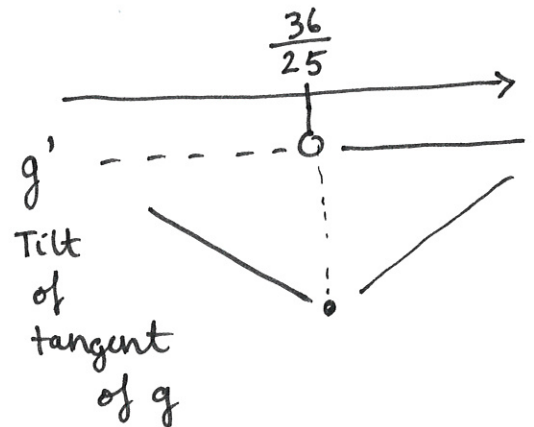 36
25
g'
Tilt
of
tangent
of g